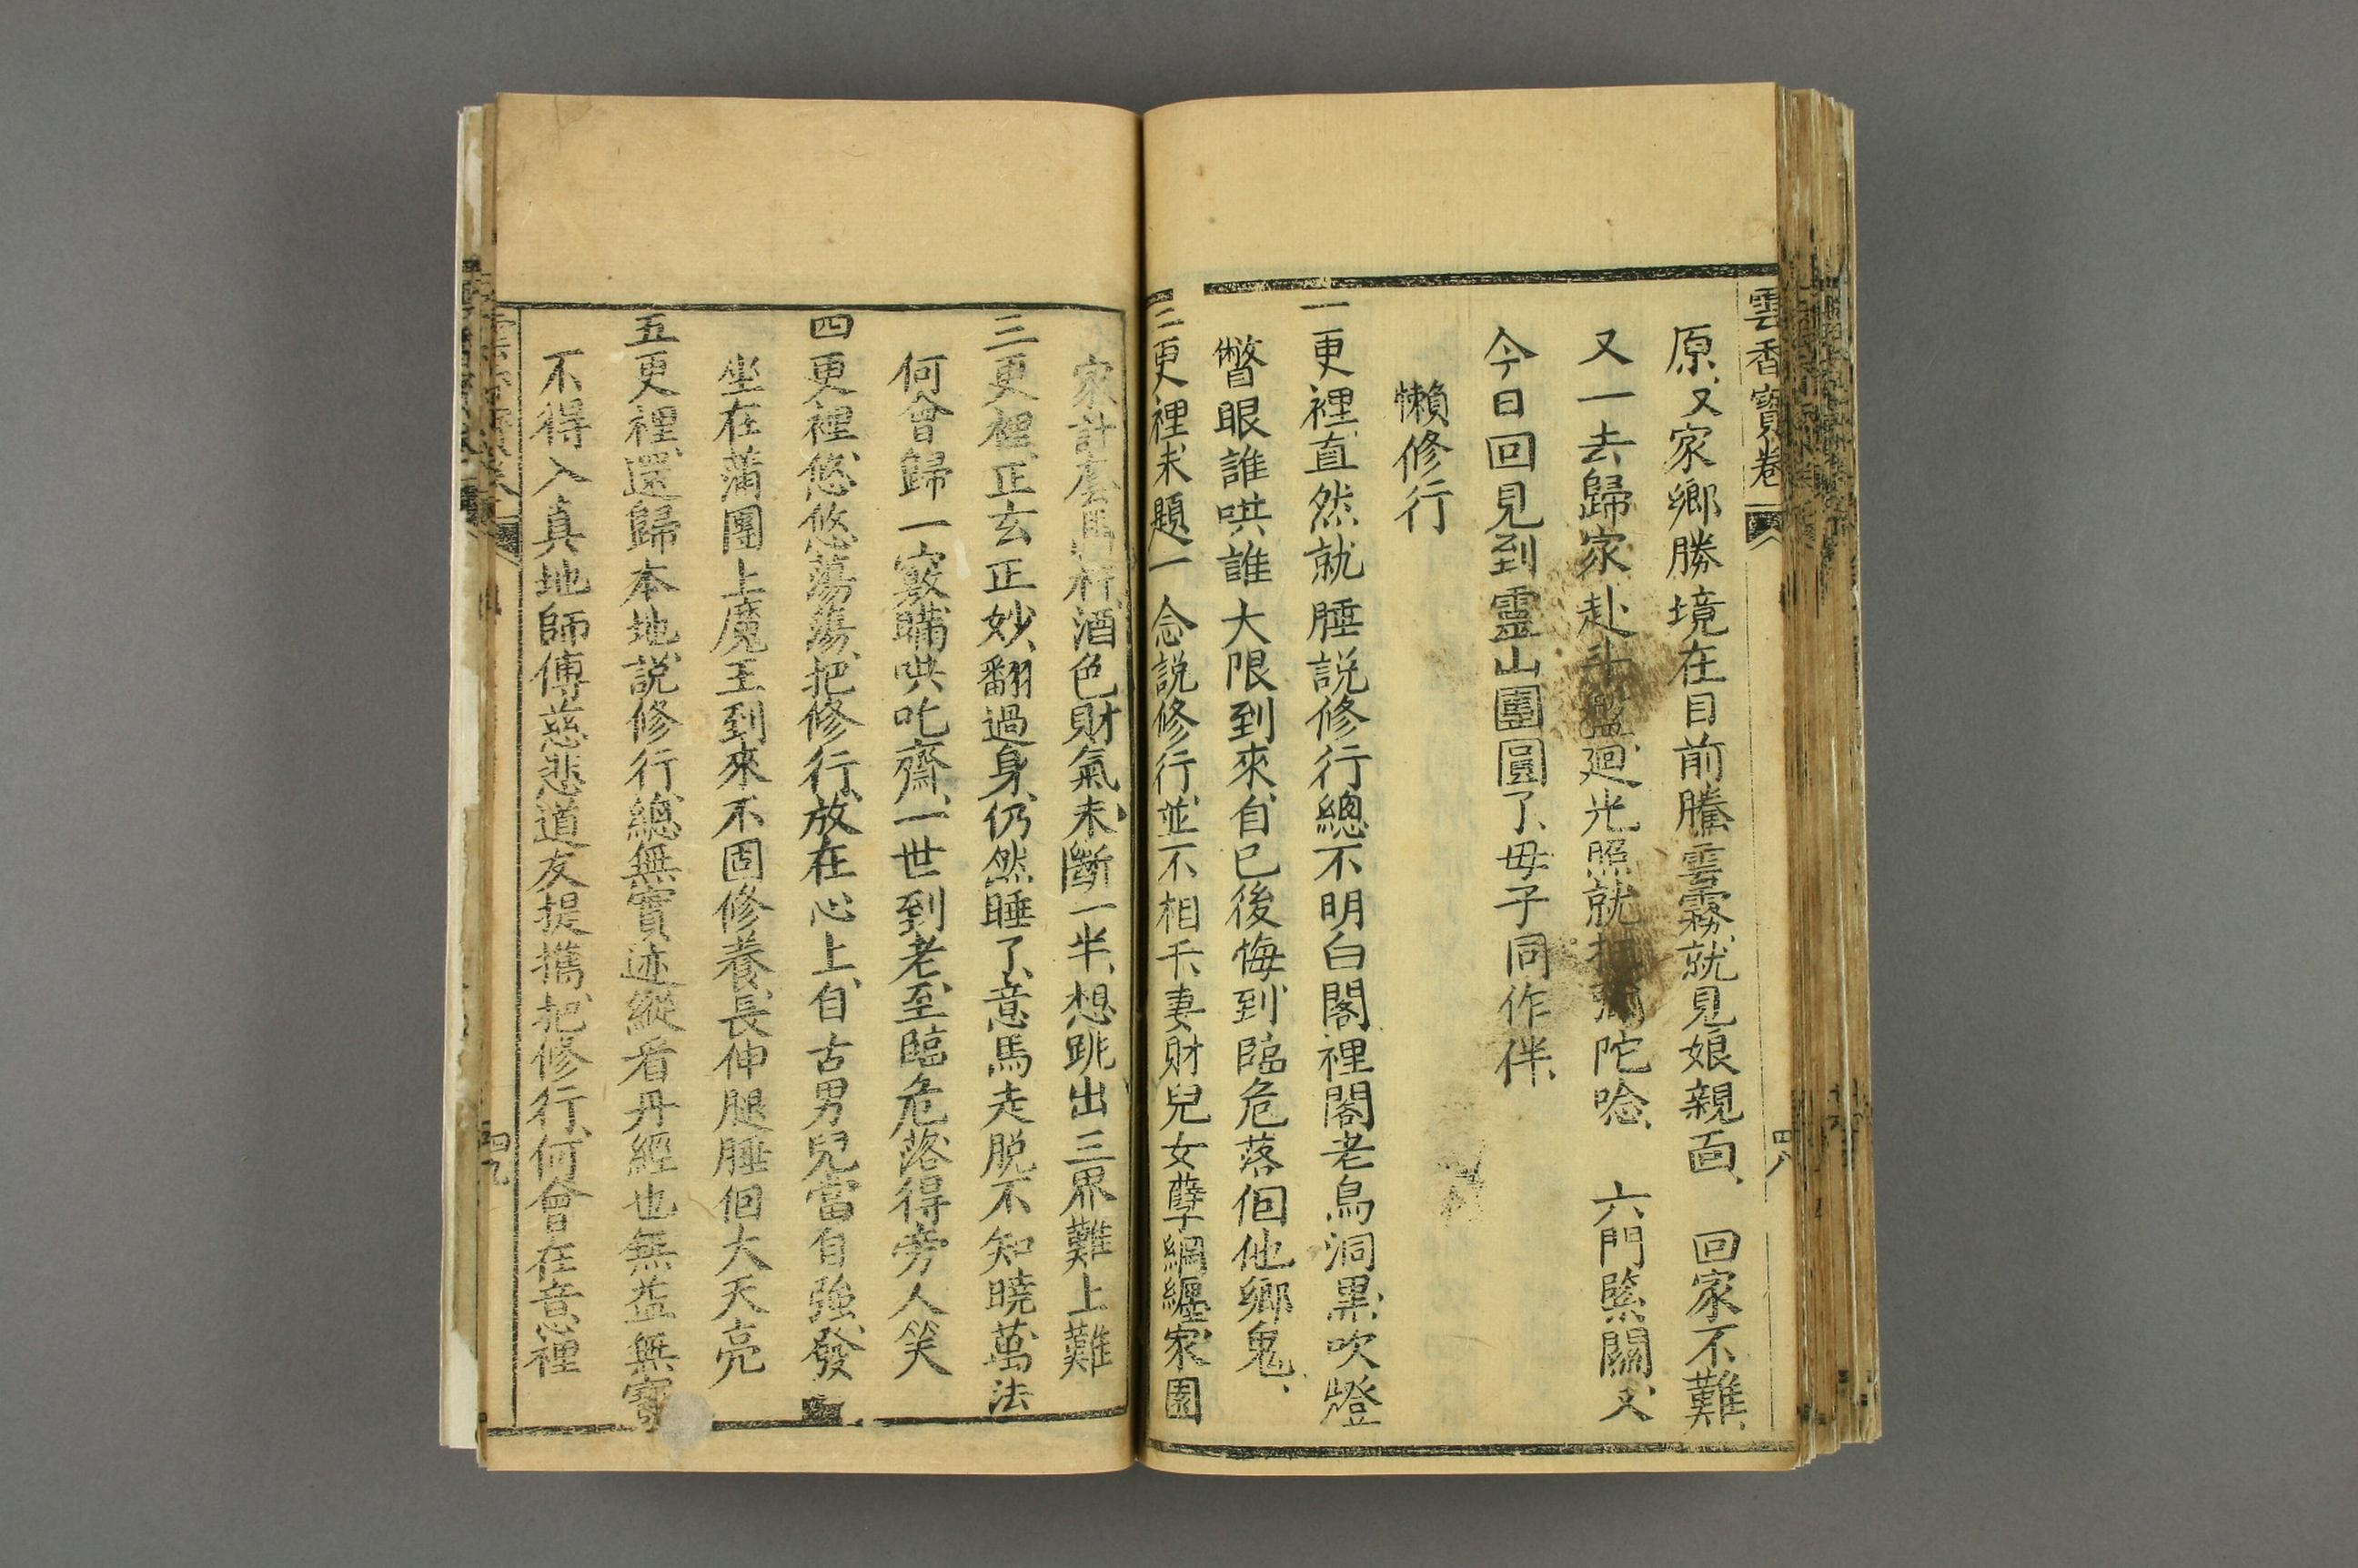 雲香寶卷
四八
原又家鄉勝境在目前騰雲霧就見娘親面、回家不難、
又一去歸家赴斗迴光照就陀唸、六門緊關又
今日回見到靈山團圓了、母子同作伴、
懶修行
一更裡直然就睡説修行總不明白閣裡閣老鳥洞黑吹燈
瞥眼誰哄誰大限到來自已後悔到臨危落個他鄉鬼、
二更裡未題一念説修行並不相干、妻財兒女孽綱纏家園
家計酒色財氣未斷一半、想跳出三界難上難
三更裡正玄正妙、翻過身仍然睡了、意馬走脱不知曉萬法
何曾歸一竅瞞哄吃齋、一世到老、至臨危落得旁人笑
四更裡悠悠蕩蕩把修行、放在心上、自古男兒當自強、發
坐在蒲團上魔王到來不固修養、長伸腿睡個大天亮
五更裡還歸本地、説修行、總無實迹縱看丹經也無益無
不得入真地師傅慈悲道友提攜把修行、何曾在意裡
四九